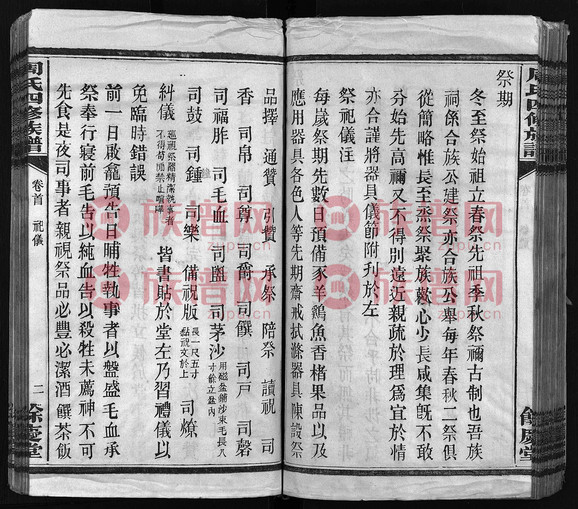 祭期
冬至祭始祖立春祭先祖季秋祭禰古制也吾族
祠係合族公建祭亦合族公舉每年春秋二祭俱
從簡略惟長至烝祭聚族敷心少長咸集既不敢
分始先高禰又不得別遠近親疏於理爲宜於情
亦合謹將器具儀節附刋於左
祭祀儀注
每歲祭期先數日預備豕羊鷄魚香楮果品以及
應用器具各色人等先期齋戒拭滌器具陳設祭
品擇 通贊 引贊 承祭 陪祭 讀祝 司
香 司帛 司尊 司爵 司饌 司戸 司磬
司福胙 司毛血 司盥 司茅沙
用磁盆鋪沙束毛長八
寸餘立盆內
司鼓 司鐘 司樂 備祝版
長一尺五寸
黏祝文於上
司燎
糾儀
不得苟簡禁止喧嘩
皆書貼於堂左乃習禮儀以
免臨時錯誤
前一日啟龕預告日晡牲執事者以盤盛毛血承
祭奉行寢前毛告以純血告以殺牲未薦神不可
先食是夜司事者親視祭品必豐必潔酒饌茶飯
周氏四修族譜
卷首 祀儀
二
餘慶堂
周氏四修族譜
餘慶堂
族譜网
zupu.cn